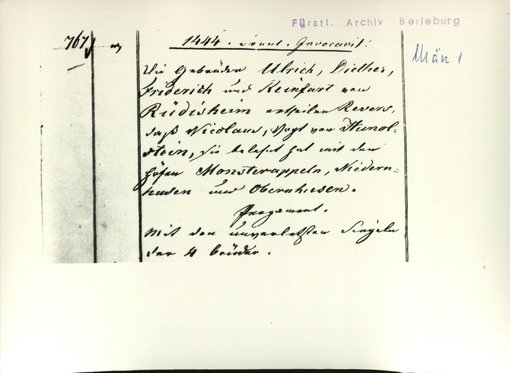 Fürstl. Archiv Berleburg
767
1444. domt. Invocavit.
Män 1
Die Gebrüder Ulrich, Diether,
Friderich und Reinfart von
Rüdisheim ertheilen Revers,
daß Nicolaus, Vogt von Hunol-
stein, sie belehnt hat mit den
Höfen Monsterappeln, Niedern-
husen und Obernhusen.
Pergament.
Mit den unverletzten Siegeln
der 4 Brüder.